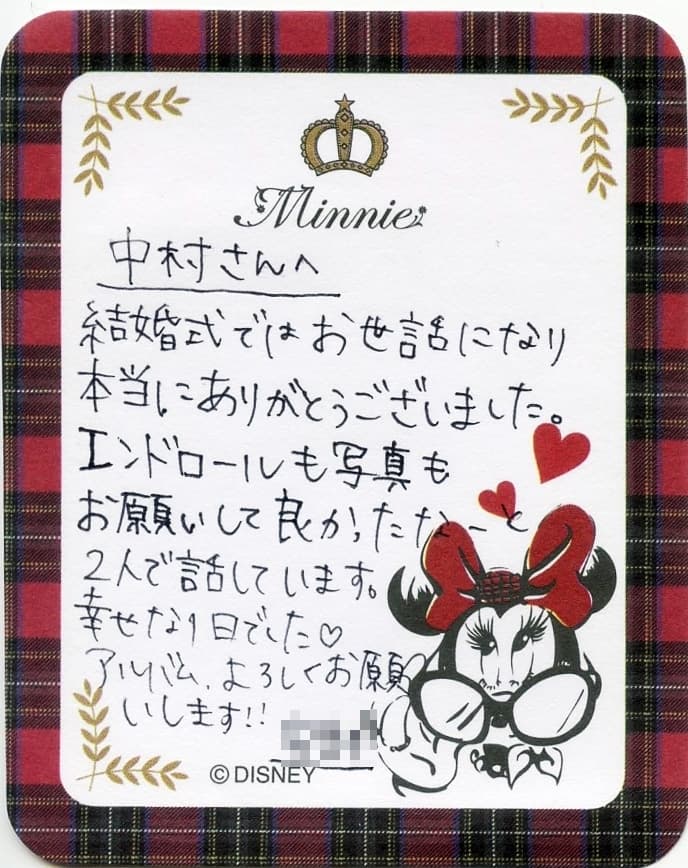 Minnie
中村さんへ
結婚式ではお世話になり
本当にありがとうございました。
エンドロールも写真も
お願いして良かったなーと
2人で話しています。
幸せな1日でした♡
アルバム、よろしくお願
いします!!
© DISNEY